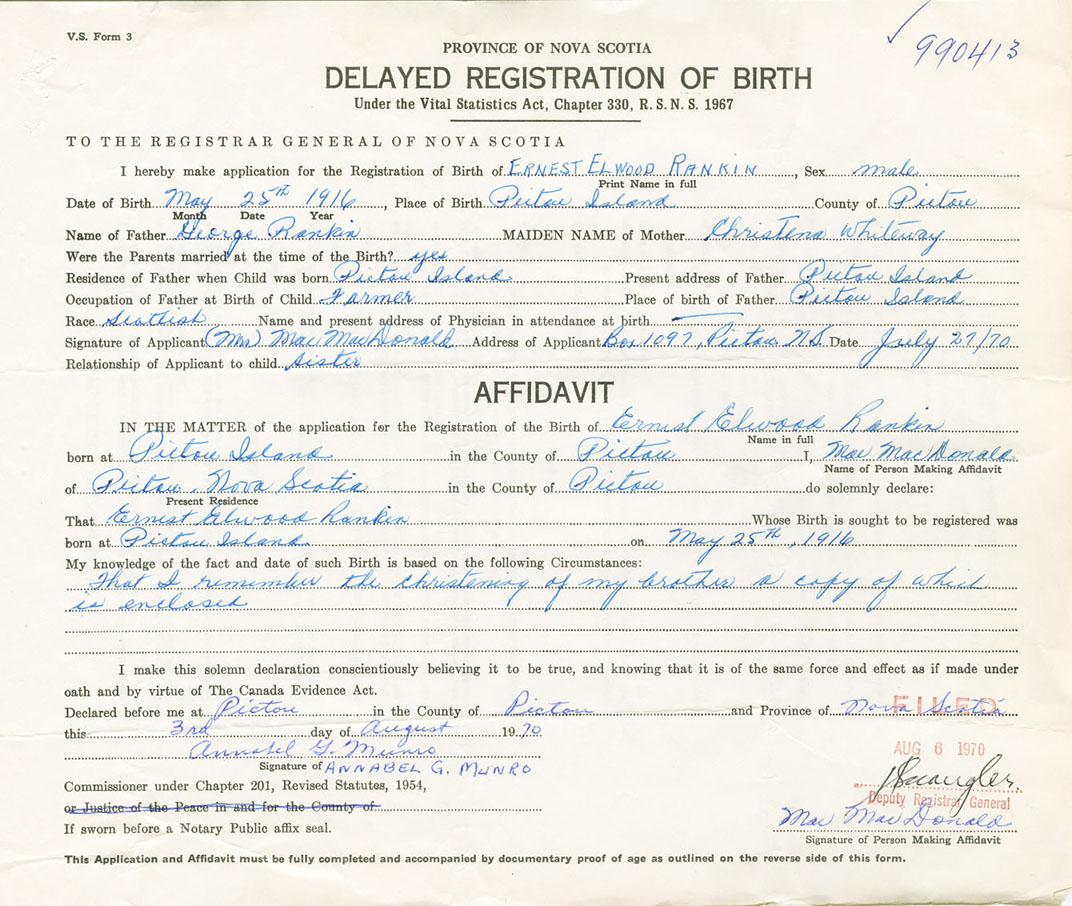 V.S. Form 3
990413
PROVINCE OF NOVA SCOTIA
DELAYED REGISTRATION OF BIRTH
Under the Vital Statistics Act, Chapter 330, R.S.N.S. 1967
TO THE REGISTRAR GENERAL OF NOVA SCOTIA
I hereby make application for the Registration of Birth of ERNEST ELWOOD RANKIN, Sex male
Print Name in full
Date of Birth May 25TH 1916, Place of Birth Pictou Island County of Pictou
Month Date Year
Name of Father George Rankin MAIDEN NAME of Mother Christena Whiteway
Were the Parents married at the time of the Birth? yes
Residence of Father when Child was born Pictou Island Present address of Father Pictou Island
Occupation of Father at Birth of Child Farmer Place of birth of Father Pictou Island
Race Scottish Name and present address of Physician in attendance at birth
Signature of Applicant (Mrs) Mae MacDonald Address of Applicant Box 1097, Pictou, N.S. Date July 27/70
Relationship of Applicant to child sister
AFFIDAVIT
IN THE MATTER of the application for the Registration of the Birth of Ernest Elwood Rankin
Name in full
born at Pictou Island in the County of Pictou I, Mae MacDonald
Name of Person Making Affidavit
of Pictou, Nova Scotia in the County of Pictou do solemnly declare:
Present Residence
That Ernest Elwood Rankin Whose Birth is sought to be registered was
born at Pictou Island. on May 25th, 1916
My knowledge of the fact and date of such Birth is based on the following Circumstances:
That I remember the christening of my brother a copy of which
is enclosed
I make this solemn declaration conscientiously believing it to be true, and knowing that it is of the same force and effect as if made under
oath and by virtue of The Canada Evidence Act.
Declared before me at Pictou in the County of Pictou and Province of Nova Scotia
FILED
this 3rd day of August 1970
AUG 6 1970
Annabel G. Munro
Signature of ANNABEL G. MUNRO
Commissioner under Chapter 201, Revised Statutes, 1954,
Deputy Registrar General
or Justice of the Peace in and for the County of
Mae MacDonald
If sworn before a Notary Public affix seal.
Signature of Person Making Affidavit
This Application and Affidavit must be fully completed and accompanied by documentary proof of age as outlined on the reverse side of this form.